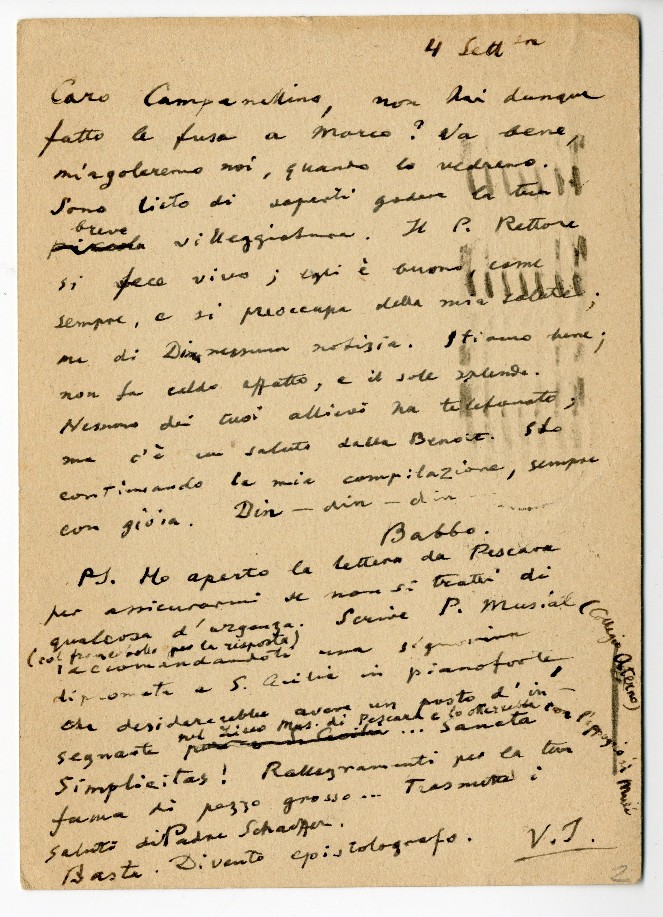 4 Sett bre
Caro Campanellino, non hai dunque
fatto le fusa a Marco? Va bene,
miagoleremo noi, quando lo vedremo.
Sono lieto di saperti godere la tua
breve
piccola villeggiatura. Il P. Rettore
si fece vivo; egli è buono, come
sempre, e si preoccupa della mia salute;
ma di Din nessuna notizia. Stiamo bene;
non fa caldo affatto, e il sole splende.
Nessuno dei tuoi allievi ha telefonato;
ma c'è un saluto dalla Benoit. Sto
continuando la mia compilazione, sempre
con gioia. Din – din – din
Babbo.
PS. Ho aperto la lettera da Pescara
per assicurarmi se non si tratti di
qualcosa d'urgenza. Scrive P. Musial (Collegio Aterno)
(col francobollo per la risposta)
raccomandandoti una signorina
diplomata a S. Cecilia in pianoforte,
che desidererebbe avere un posto d'in-
segnante nel Liceo Mus. di Pescara e lo otterrebbe con l'appoggio di
... Sancta
Simplicitas! Rallegramenti per la tua
fama di pezzo grosso... Trasmetti i
saluti di Padre Schaeffer.
Basta. Divento epistolografo. V.I.
2